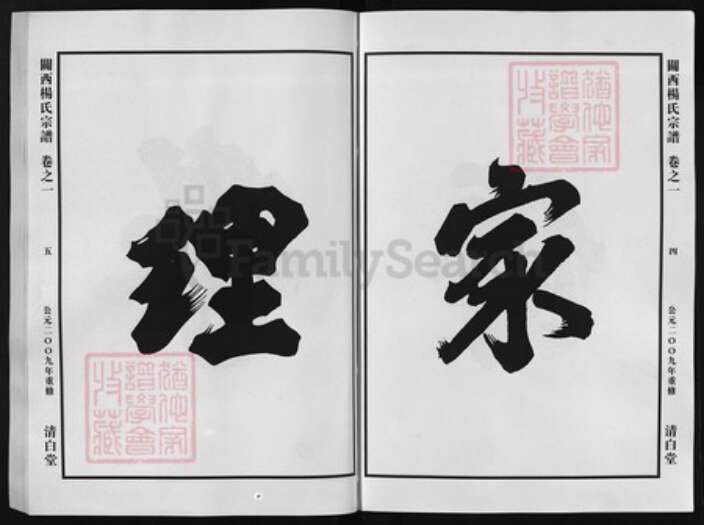 關西楊氏宗譜 卷之一
四
公元二〇〇九年重修
清白堂
宗
關西楊氏宗譜 卷之一
五
公元二〇〇九年重修
清白堂
理
FamilySearch